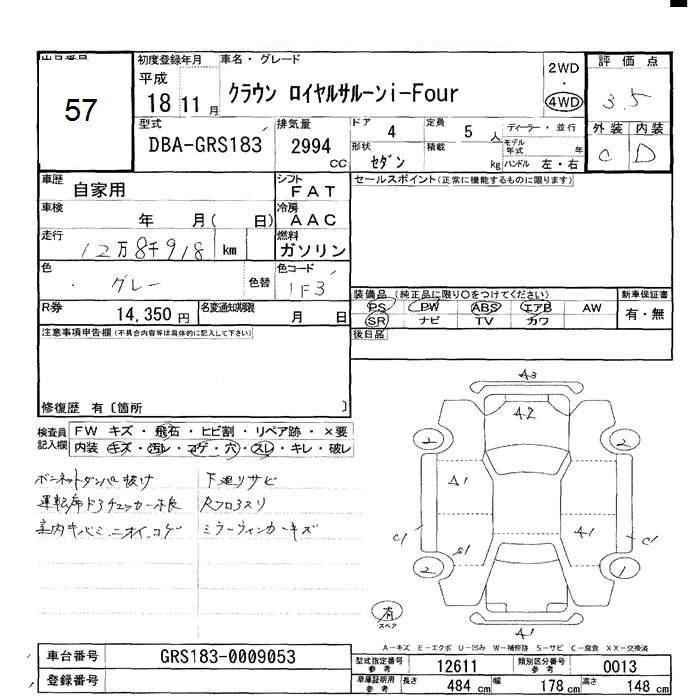 出品番号
57
初度登録年月
平成
18 11 月
車名・グレード
クラウン ロイヤルサルーンi-Four
2WD
・
4WD
評価点
3.5
外装 内装
C D
型式
DBA-GRS183
排気量
2994
CC
ドア
4
形状
セダン
定員
5 人
積載
kg
ディーラー・並行
モデル年式 年
ハンドル 左・右
車歴
自家用
シフト
FAT
車検
年 月( 日)
冷房
AAC
走行
12万8千918 km
燃料
ガソリン
色
グレー
色替
色コード
1F3
R券
14,350 円
名変通知期限
月 日
セールスポイント(正常に機能するものに限ります)
装備品 (純正品に限り○をつけてください)
PS PW ABS エアB AW
SR ナビ TV カワ
新車保証書
有・無
後日品
注意事項申告欄(不具合内容等は具体的に記入して下さい)
修復歴 有〔箇所 〕
検査員記入欄
FW キズ・飛石・ヒビ割・リペア跡・×要
内装・キズ・汚レ・コゲ・穴・スレ・キレ・破レ
ボンネットダンパー抜け
運転席ドアチェッカー不良
室内キバミ、ニオイ、コゲ
下廻りサビ
ミラーウィンカーキズ
A3
A2
2
2
A1
A1
C1
C1
S1
2
1
A1
有
スペア
A－キズ E－エクボ U－凹み W－補修跡 S－サビ C－腐食 XX－交換済
車台番号
GRS183-0009053
登録番号
型式指定番号
参考
12611
類別区分番号
参考
0013
車庫証明用
参考
長さ 484 cm 幅 178 cm 高さ 148 cm